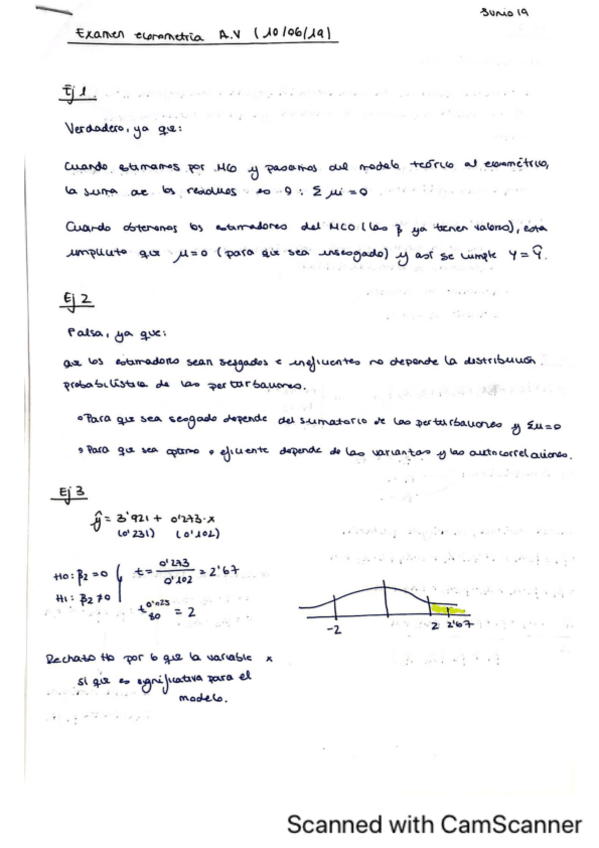 Junio 19
Examen econometría A.V (10/06/19)
Ej 1
Verdadero, ya que:
Cuando estimamos por MCO y pasamos del modelo teórico al econométrico,
la suma de los residuos es 0 : Σ μi = 0
Cuando obtenemos los estimadores del MCO (las β ya tienen valores), esta
implícito que μ=0 (para que sea insesgado) y así se cumple Y = Ŷ.
Ej 2
Falsa, ya que:
que los estimadores sean sesgados e ineficientes no depende la distribución
probabilística de las perturbaciones.
• Para que sea sesgado depende del sumatorio de las perturbaciones y Σu=0
• Para que sea óptimo o eficiente depende de las varianzas y las autocorrelaciones.
Ej 3
ŷ = 3'921 + 0'273·x
(0'231) (0'102)
H0: β2 = 0
H1: β2 ≠ 0
t = 0'273 / 0'102 = 2'67
t 0'025 80 = 2
-2 2 2'67
Rechazo H0 por lo que la variable x
si que es significativa para el
modelo.
Scanned with CamScanner